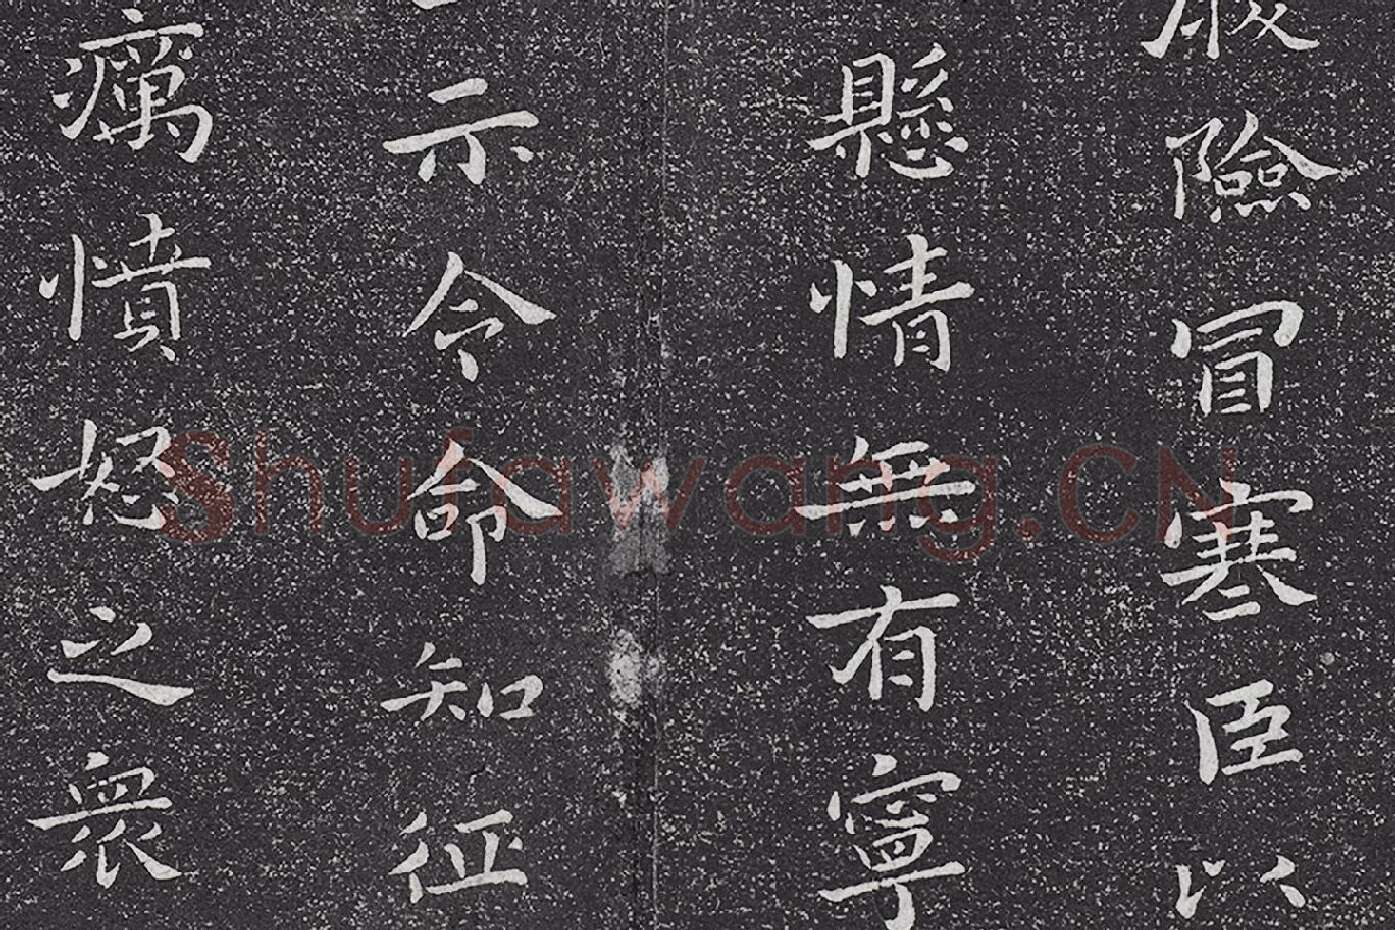 險冒寒臣以
懸情無有寧
示令命知征
癘憤怒之衆
Shufawang.CN